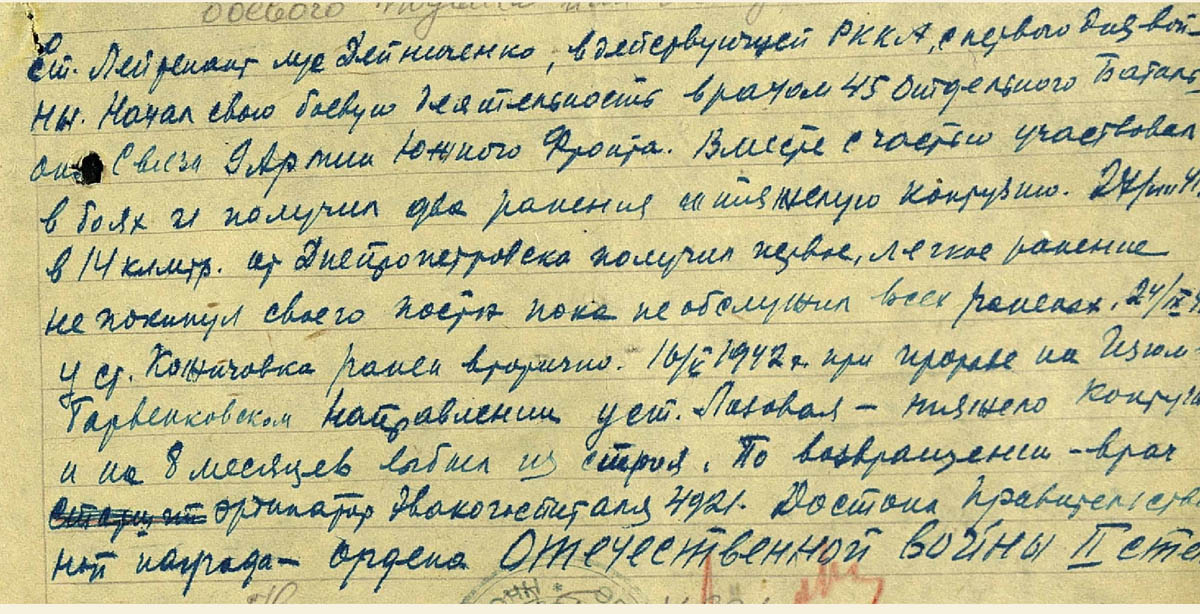 боевого подвига или
Ст. Лейтенант м/с Дейниченко, в действующей РККА, с первого дня вой-
ны. Начал свою боевую деятельность врачом 45 Отдельного Баталь
она Связи 9 Армии Южного Фронта. Вместе с частью участвовал
в боях и получил два ранения и тяжелую контузию. 27/VIII 4
в 14 клмтр. от Днепропетровска получил первое, легкое ранение
не покинул своего поста пока не обслужил всех раненых. 24/IX
у ст. ранен вторично. 16/V 1942 г. при прорыве на Изюм-
Барвенковском направлении у ст. Лозовая – тяжело контуж
и на 8 месяцев выбыл из строя. По возвращении – врач
ординатор Эвакогоспиталя 4921. Достоин Правительств
ной награды – ордена Отечественной войны II степ